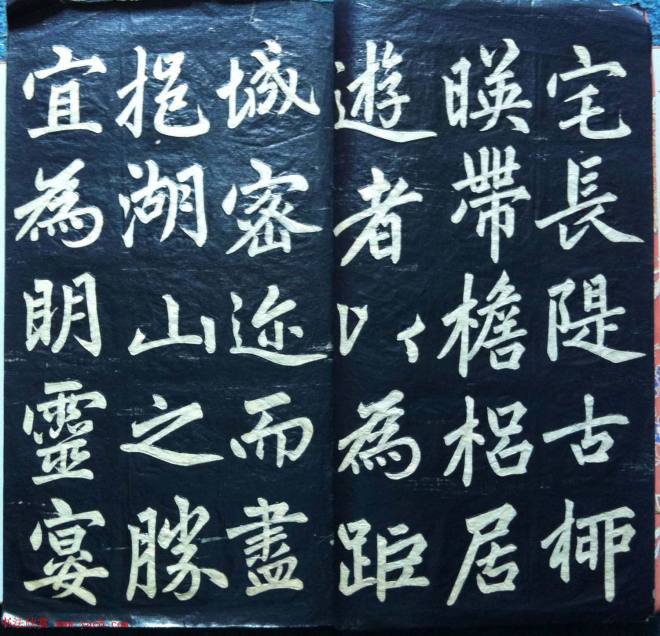 宅長隄古栁
暎帶檐梠居
遊者以為距
城密迩而盡
挹湖山之勝
宜為明靈宴